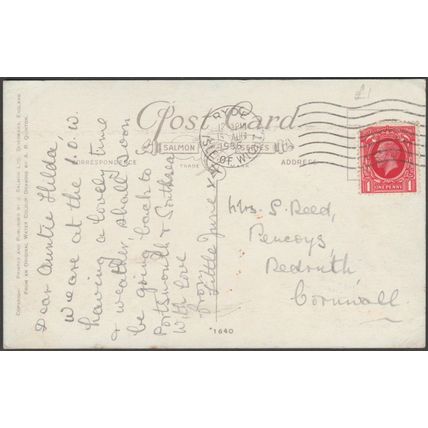 £1
Post Card
SALMON SERIES
TRADE MARK
CORRESPONDENCE
ADDRESS
RYDE
ISLE OF WIGHT
ONE PENNY
1 1
Dear Auntie Hilda,
We are at the I.O.W
having a lovely time
& weather, shall soon
be going back to
Portsmouth & Southsea
With love
from
Little June xx
Mrs. S. Reed,
Pencoys
Redruth
Cornwall
*1640
COPYRIGHT. PRINTED AND PUBLISHED BY J. SALMON LTD. SEVENOAKS, ENGLAND.
FROM AN ORIGINAL WATER COLOUR DRAWING BY A. R. QUINTON.